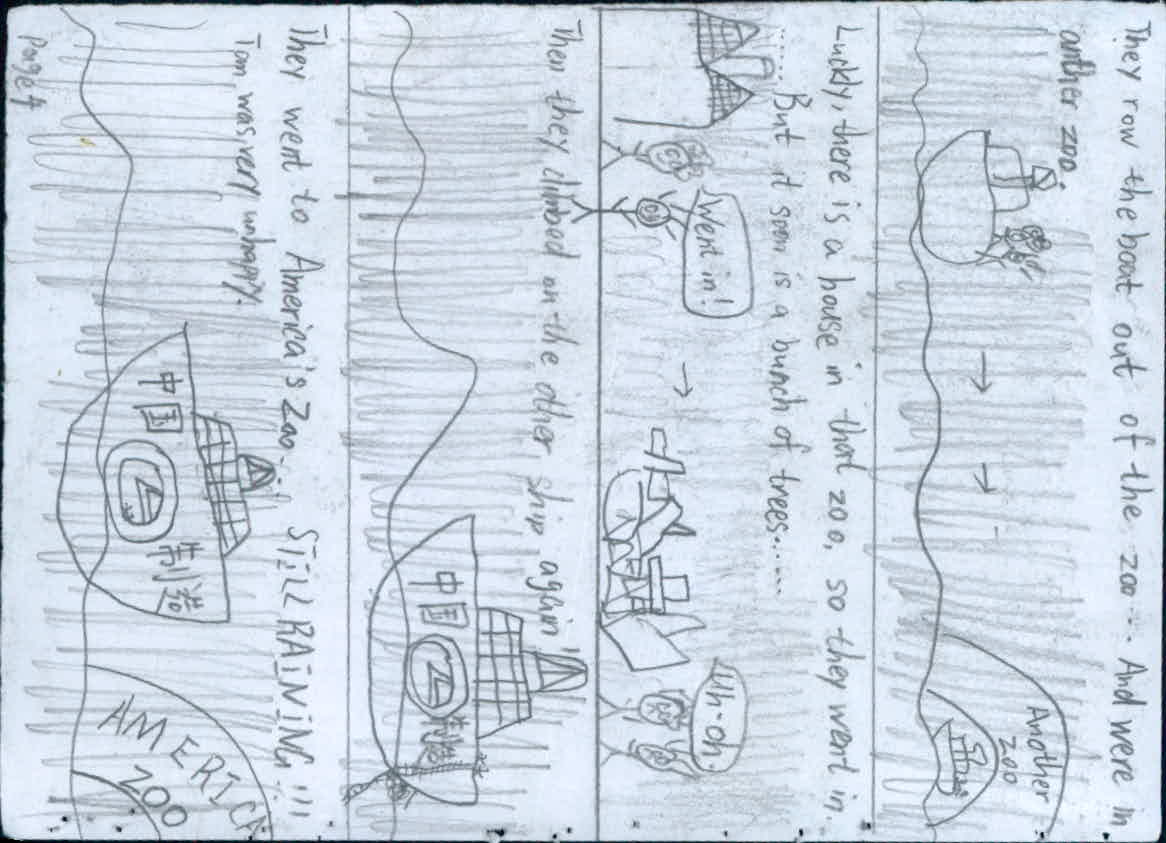 They row the boat out of the zoo... And were in
anther zoo.
Another
zoo
Luckly, there is a house in that zoo, so they went in.
...... But it soon is a bunch of trees......
Went in!
Uh-oh.
Then they climbed on the other ship again!
中国 制造
They went to America's Zoo.... STiLL RAiNiNG!!!
Tom was very unhappy.
中国 制造
AMERICA
ZOO
Page 4